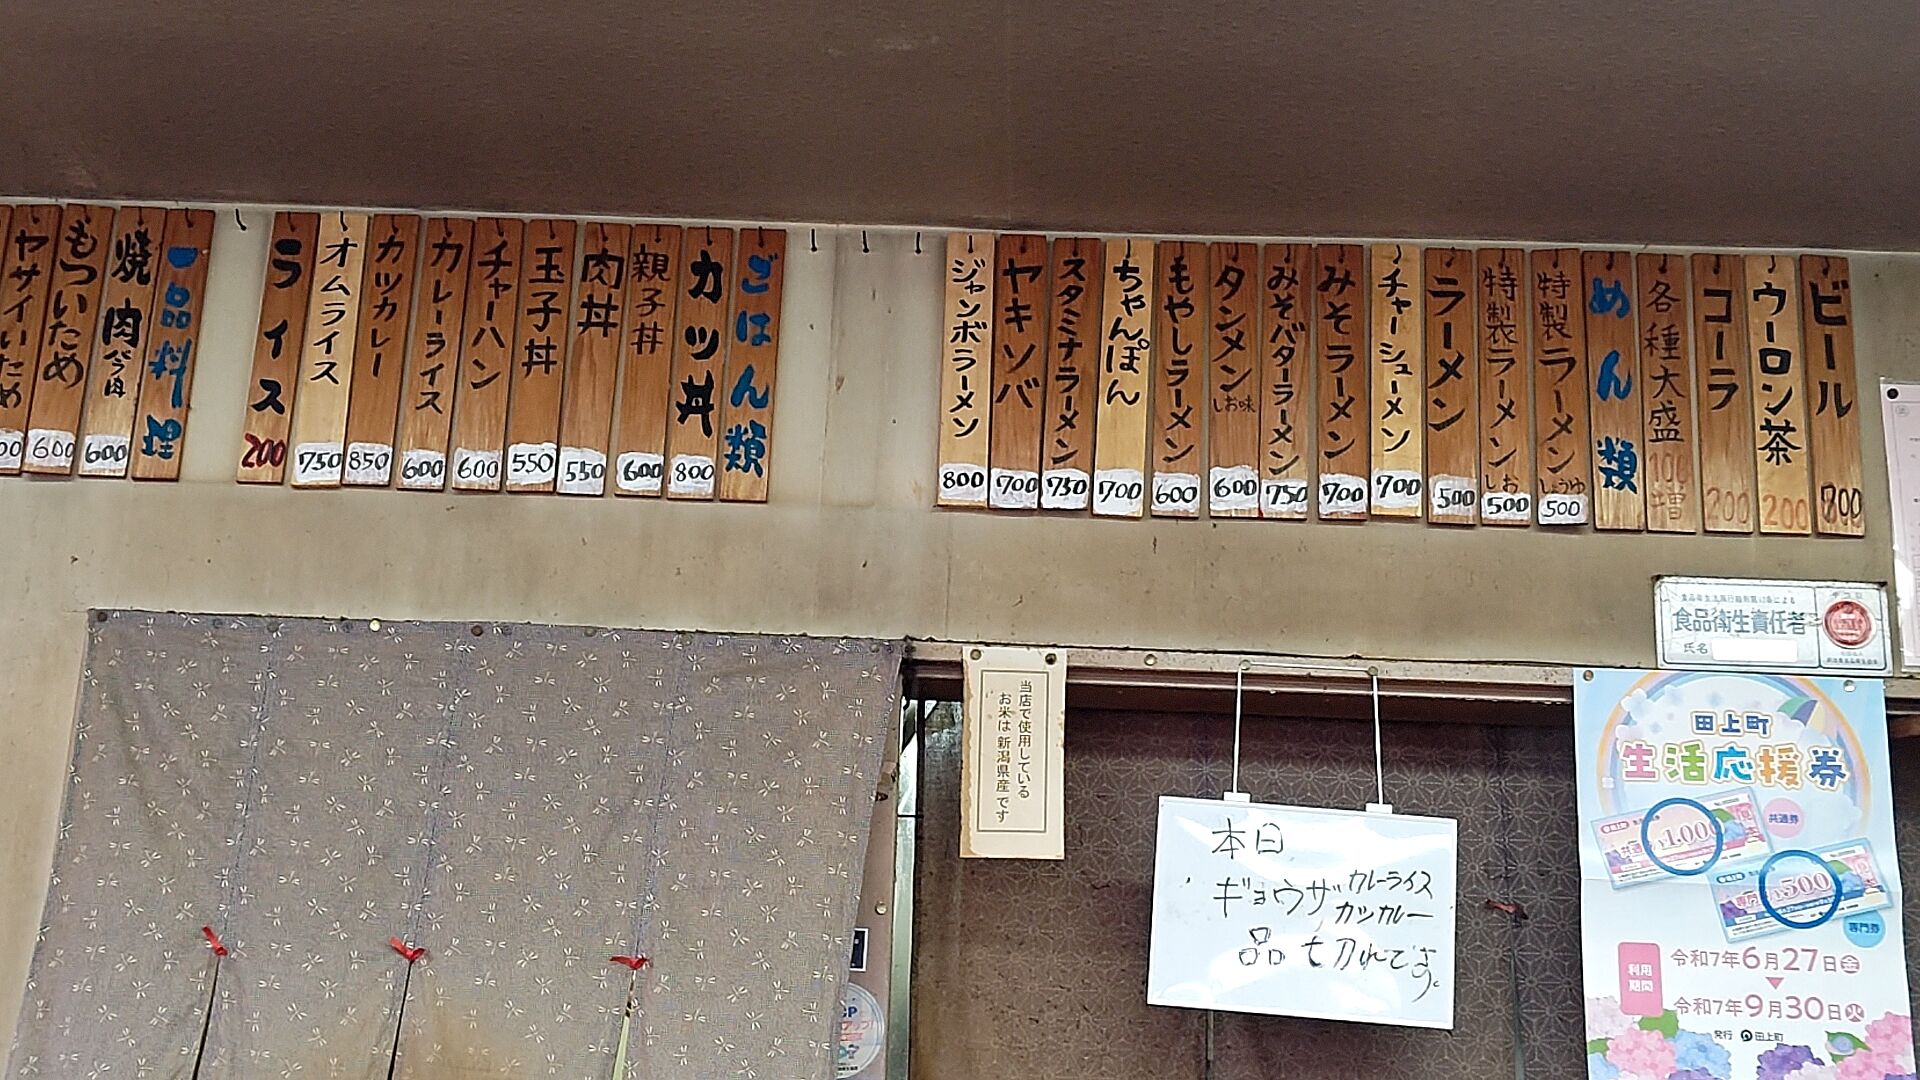 ビール 800
ウーロン茶 200
コーラ 200
各種大盛 100増
めん類
特製ラーメン しょうゆ 500
特製ラーメン しお 500
ラーメン 500
チャーシューメン 700
みそラーメン 700
みそバターラーメン 750
タンメン しお味 600
もやしラーメン 600
ちゃんぽん 700
スタミナラーメン 750
ヤキソバ 700
ジャンボラーメン 800
ごはん類
カツ丼 800
親子丼 600
肉丼 550
玉子丼 550
チャーハン 600
カレーライス 600
カツカレー 850
オムライス 750
ライス 200
一品料理
焼肉 600
もついため 600
ヤサイいため
食品衛生責任者
氏名
当店で使用している
お米は新潟県産です
本日
ギョウザ カレーライス
カツカレー
品切れです。
田上町
生活応援券
¥1,000
共通券
¥500
専門券
利用
期間
令和7年6月27日㊎
令和7年9月30日㊋
発行 田上町